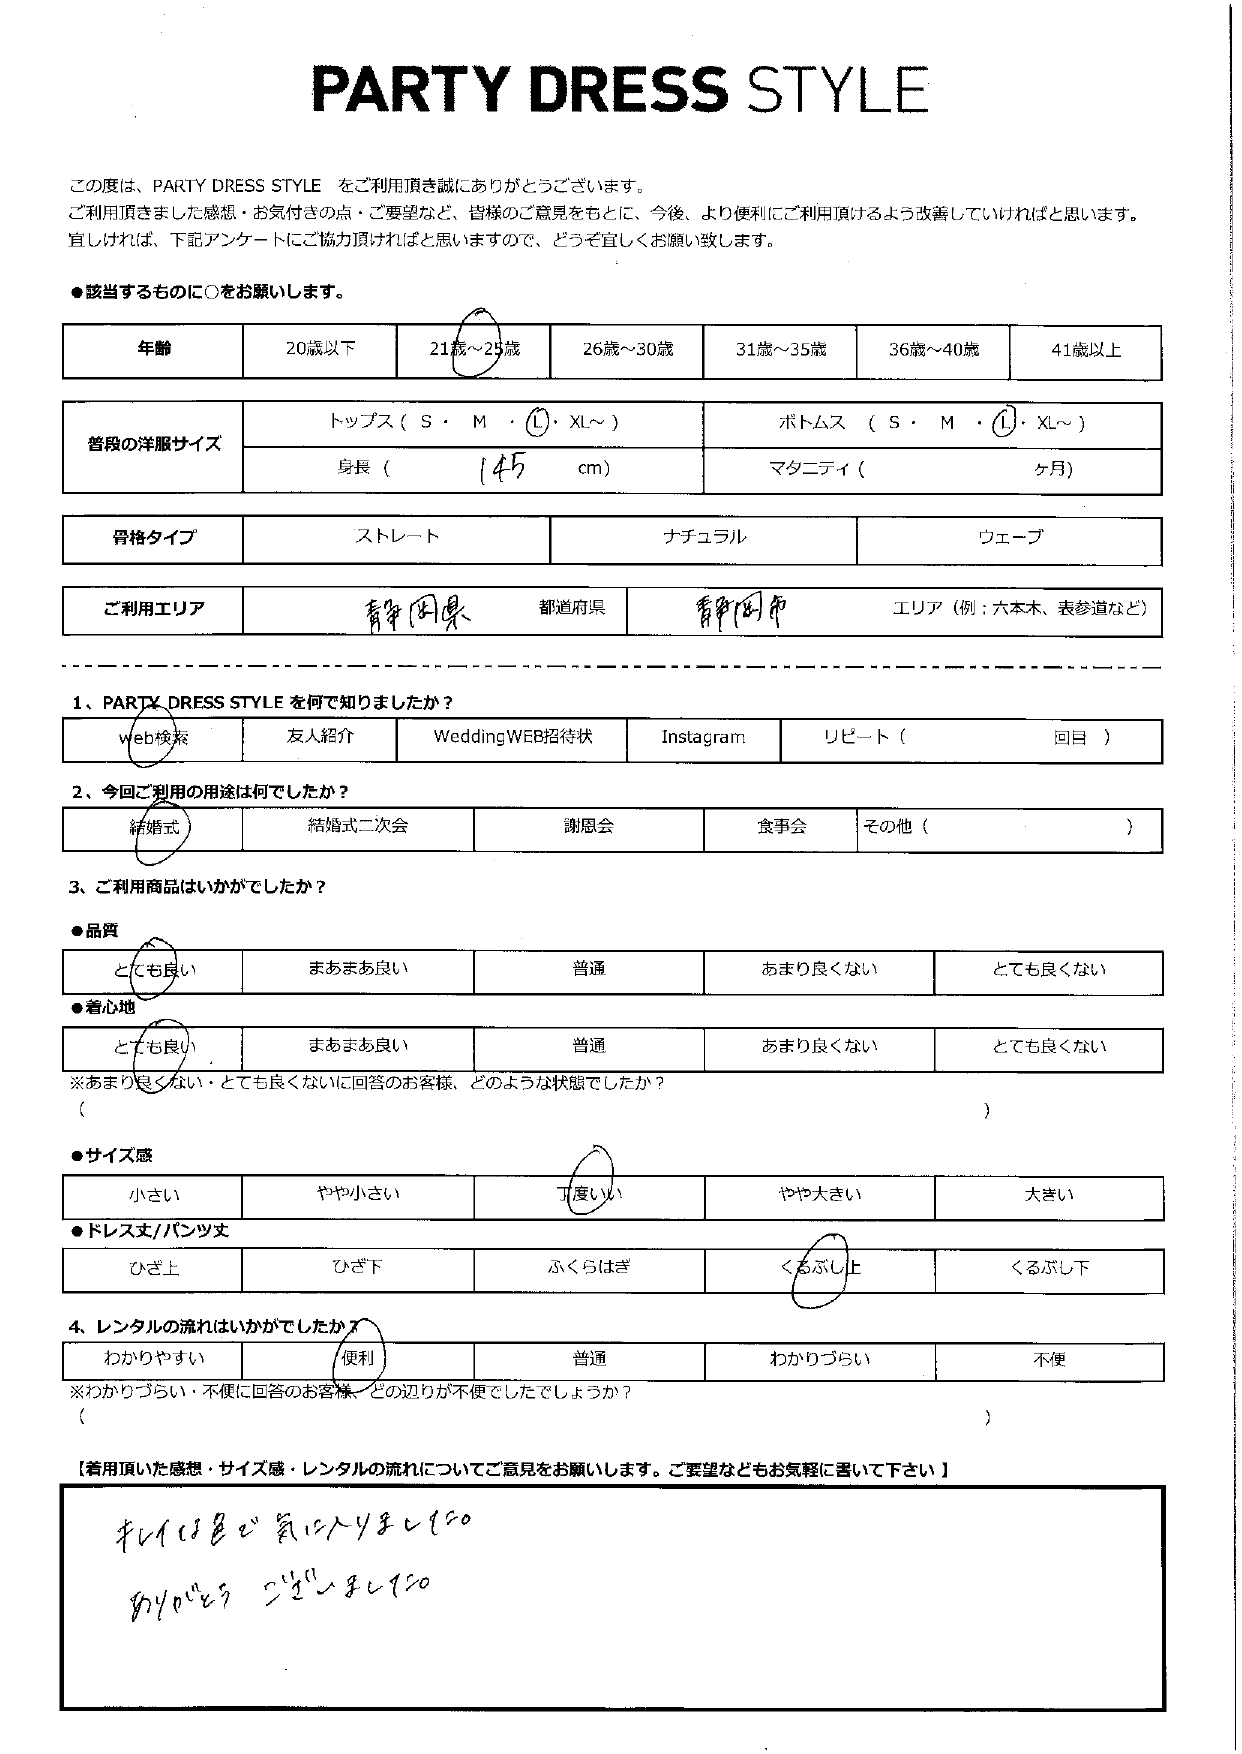 PARTY DRESS STYLE
この度は、PARTY DRESS STYLE をご利用頂き誠にありがとうございます。
ご利用頂きました感想・お気付きの点・ご要望など、皆様のご意見をもとに、今後、より便利にご利用頂けるよう改善していければと思います。
宜しければ、下記アンケートにご協力頂ければと思いますので、どうぞ宜しくお願い致します。
●該当するものに○をお願いします。
年齢 20歳以下 21歳～25歳 26歳～30歳 31歳～35歳 36歳～40歳 41歳以上
普段の洋服サイズ
トップス ( S ・ M ・ L ・ XL～ ) ボトムス ( S ・ M ・ L ・ XL～ )
身長 ( 145 cm) マタニティ ( ヶ月)
骨格タイプ ストレート ナチュラル ウェーブ
ご利用エリア 静岡県 都道府県 静岡市 エリア（例；六本木、表参道など）
1、PARTY DRESS STYLE を何で知りましたか？
web検索 友人紹介 WeddingWEB招待状 Instagram リピート ( 回目 )
2、今回ご利用の用途は何でしたか？
結婚式 結婚式二次会 謝恩会 食事会 その他 ( )
3、ご利用商品はいかがでしたか？
●品質
とても良い まあまあ良い 普通 あまり良くない とても良くない
●着心地
とても良い まあまあ良い 普通 あまり良くない とても良くない
※あまり良くない・とても良くないに回答のお客様、どのような状態でしたか？
( )
●サイズ感
小さい やや小さい 丁度いい やや大きい 大きい
●ドレス丈/パンツ丈
ひざ上 ひざ下 ふくらはぎ くるぶし上 くるぶし下
4、レンタルの流れはいかがでしたか？
わかりやすい 便利 普通 わかりづらい 不便
※わかりづらい・不便に回答のお客様、どの辺りが不便でしたでしょうか？
( )
【着用頂いた感想・サイズ感・レンタルの流れについてご意見をお願いします。ご要望などもお気軽に書いて下さい 】
キレイな色で 気に入りました。
ありがとう ございました。